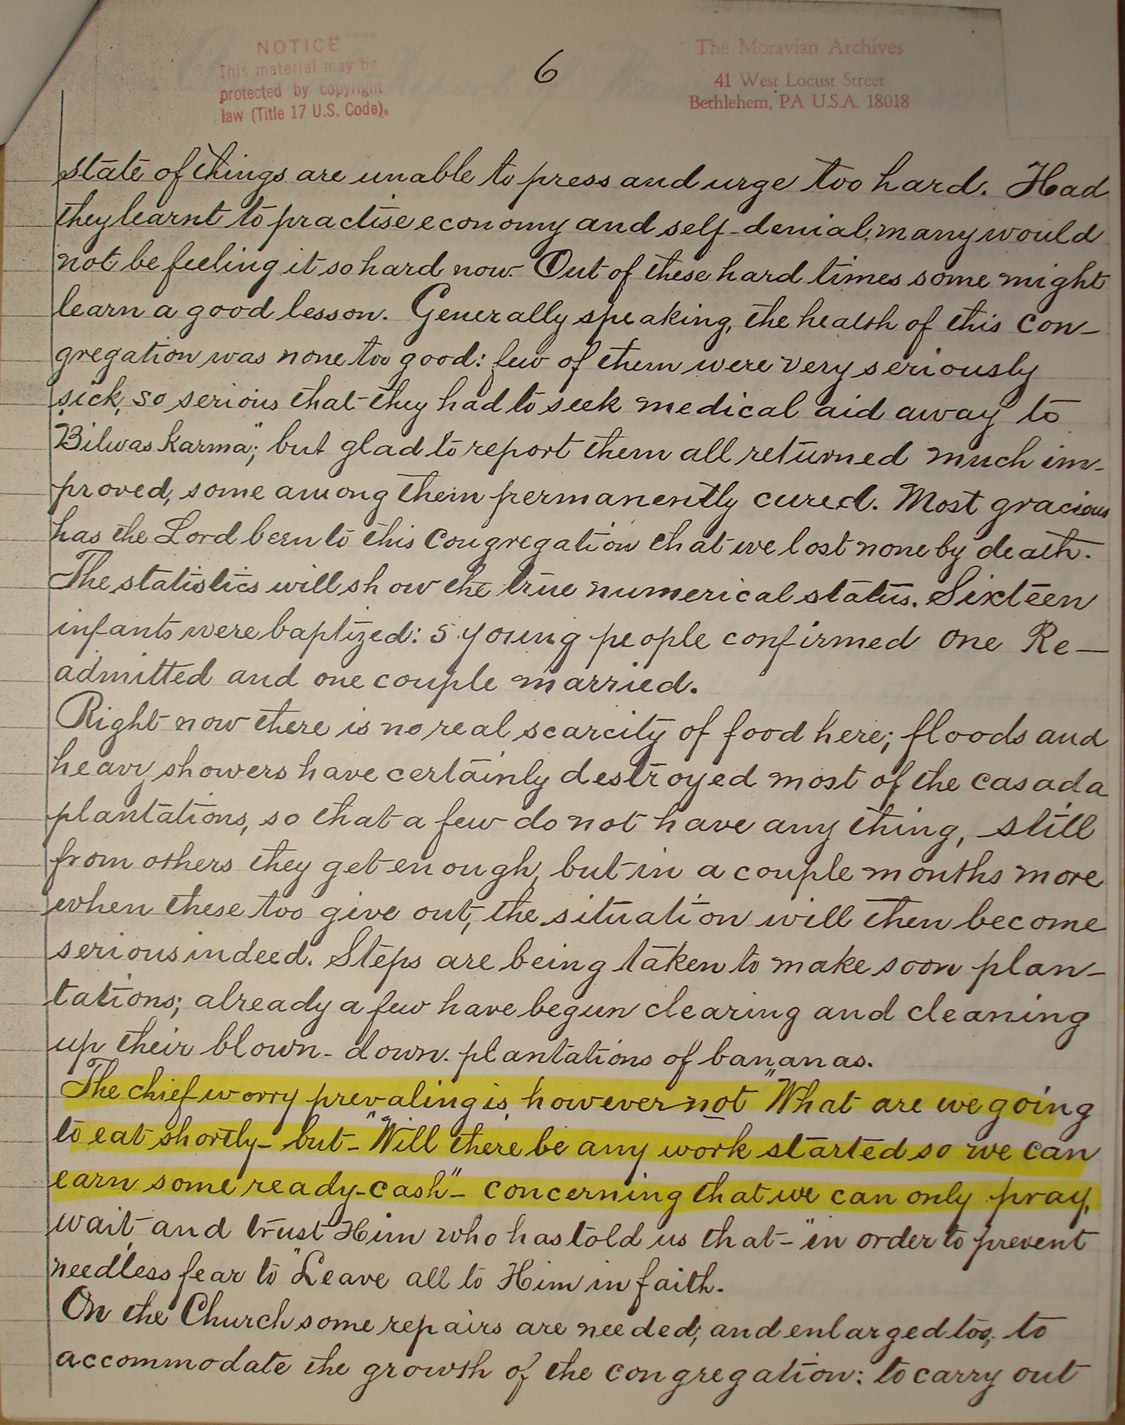 NOTICE
This material may be
protected by copyright
law (Title 17 U.S. Code).
6
The Moravian Archives
41 West Locust Street
Bethlehem, PA U.S.A. 18018
state of things are unable to press and urge too hard. Had
they learnt to practise economy and self-denial, many would
not be feeling it so hard now. Out of these hard times some might
learn a good lesson. Generally speaking, the health of this con-
gregation was none too good: few of them were very seriously
sick, so serious that they had to seek medical aid away to
"Bilwas karma"; but glad to report them all returned much im-
proved, some among them permanently cured. Most gracious
has the Lord been to this Congregation that we lost none by death.
The statistics will show the true numerical status. Sixteen
infants were baptized: 5 young people confirmed one Re-
admitted and one couple married.
Right now there is no real scarcity of food here; floods and
heavy showers have certainly destroyed most of the casada
plantations, so that a few do not have any thing, still
from others they get enough, but in a couple months more
when these too give out, the situation will then become
serious indeed. Steps are being taken to make soon plan-
tations; already a few have begun clearing and cleaning
up their blown-down plantations of bananas.
The chief worry prevaling is however not "What are we going
to eat shortly - but - "Will there be any work started so we can
earn some ready-cash" - concerning that we can only pray,
wait and trust Him who has told us that - "in order to prevent
needless fear to "Leave all to Him in faith.
On the Church some repairs are needed, and enlarged too, to
accommodate the growth of the congregation: to carry out